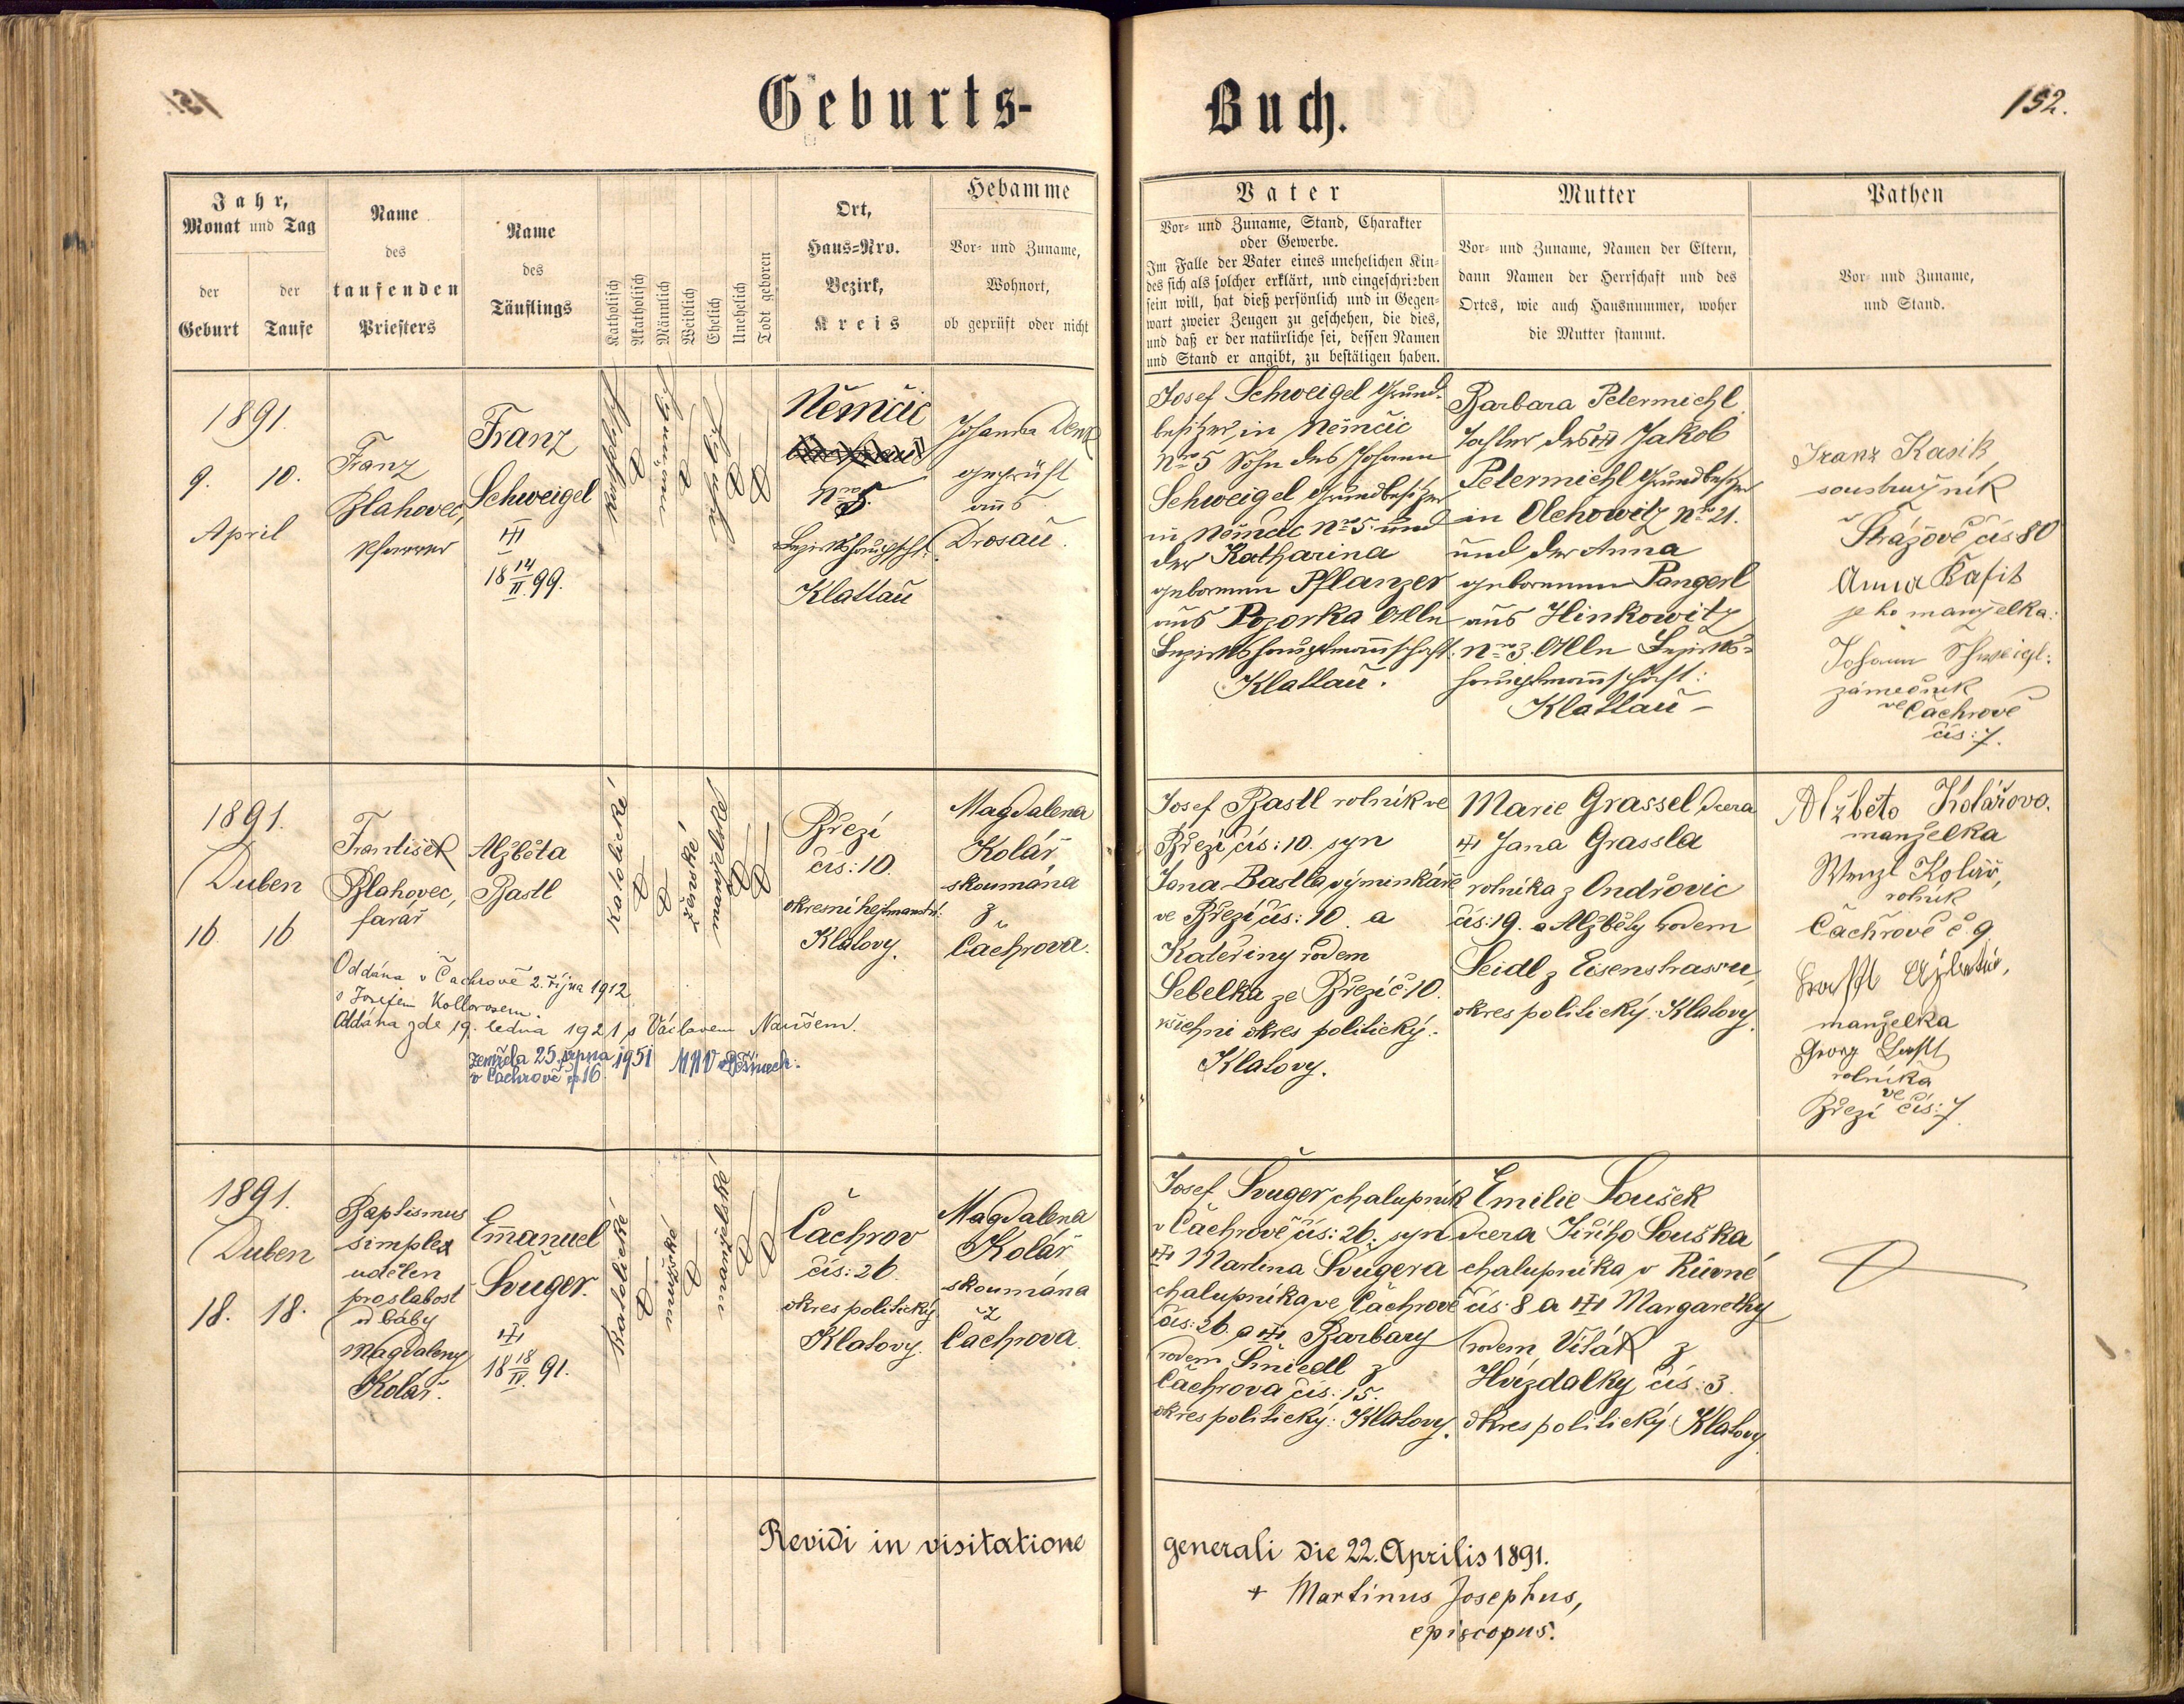 Geburts-
Buch.
152.
Jahr,
Monat und Tag
der
Geburt
der
Taufe
Name
des
taufenden
Priesters
Name
des
Täuflings
Katholisch
Akatholisch
Männlich
Weiblich
Ehelich
Unehelich
Todt geboren
Ort,
Haus=Nro.
Bezirk,
Kreis
Hebamme
Vor- und Zuname,
Wohnort,
ob geprüft oder nicht
Vater
Vor- und Zuname, Stand, Charakter
oder Gewerbe.
Im Falle der Vater eines unehelichen Kin-
des sich als solcher erklärt, und eingeschrieben
sein will, hat dieß persönlich und in Gegen-
wart zweier Zeugen zu geschehen, die dies,
und daß er der natürliche sei, dessen Namen
und Stand er angibt, zu bestätigen haben.
Mutter
Vor- und Zuname, Namen der Eltern,
dann Namen der Herrschaft und des
Ortes, wie auch Hausnummer, woher
die Mutter stammt.
Pathen
Vor- und Zuname,
und Stand.
1891.
9. 10.
April
Franz
Blahovec,
Pfarrer
Franz
Schweigel
18 14/II. 99.
katholisch
ehelich
Němčic
Nro 5.
Bezirkshauptscht.
Klattau
Johanna Denk
geprüft
aus
Drosau.
Josef Schweigel Grund-
besitzer in Němčic
Nro 5 Sohn des Johann
Schweigel Grundbesitzer
in Němčic Nro 5 und
der Katharina
gebornen Pflanzer
aus Pozorka Alle
Bezirkshauptmannschaft:
Klattau.
Barbara Petermichl
Tochter des Jakob
Petermichl Grundbesitzer
in Olchowitz Nro 21.
und der Anna
gebornenen Pangerl
aus Hinkowitz
Nro 3. Alle Bezirks-
hauptmannschaft:
Klattau –
Franz Kasik
soustružník
v Strážově čís 80
Anna Kasik
jeho manželka:
Johann Schweigl:
zámečník
ve Čachrově
čís: 7.
1891.
Duben
16 16
František
Blahovec,
farář
Alžběta
Bastl
katolické
ženské
manželské
Březí
čís: 10.
okresní hejtmanství:
Klatovy.
Magdalena
Kolář
skoumána
z
Čachrova.
Oddána v Čachrově 2. října 1912
s Josefem Kollorosem.
Oddána zde 19. ledna 1921 s Václavem Naušem.
Zemřela 25. srpna 1951
v Čachrově čp 16.
Josef Bastl rolník ve
Březí čís: 10. syn
Jana Bastla výminkáře
ve Březí čís: 10. a
Kateřiny rodem
Sebelka ze Březí č. 10.
všichni okres politický:
Klatovy.
Marie Grassel, dcera
Jana Grassla
rolníka z Ondřovic
čís: 19. a Alžběty rodem
Seidl z Eisenstrassu,
okres politický: Klatovy.
Alžběta Kolářova.
manželka
Wenzl Kolář,
rolník
Čachrově č. 9
manželka
Georg Bastl
rolníka
ve
Březí čís: 7
1891.
Duben
18. 18.
Baptismus
simplex
udělen
pro slabost
od báby
Magdaleny
Kolář.
Emanuel
Švuger.
18 18/IV. 91.
katolické
mužské
manželské
Čachrov
čís: 26.
okres politický
Klatovy.
Magdalena
Kolář
skoumána
z
Čachrova.
Josef Švuger, chalupník
v Čachrově čís: 26. syn
Martina Švugera
chalupníka ve Čachrově
čís: 26. a Barbary
rodem Šniedl z
Čachrova čís: 15.
okres politický: Klatovy.
Emilie Soušek
dcera Jiřího Souška
chalupníka v Růvné
čís: 8 a Margarethy
rodem Víták z
Hvízdalky čís: 3.
okres politický: Klatovy.
Revidi in visitatione
generali die 22. Aprilis 1891.
+ Martinus Josephus,
episcopus.